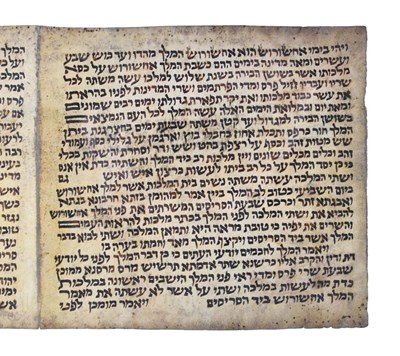 ויהי בימי אחשורוש הוא אחשורוש המלך מהדו ועד כוש שבע
ועשרים ומאה מדינה בימים ההם כשבת המלך אחשורוש על כסא
מלכותו אשר בשושן הבירה בשנת שלוש למלכו עשה משתה לכל
שריו ועבדיו חיל פרס ומדי הפרתמים ושרי המדינות לפניו בהראתו
את עשר כבוד מלכותו ואת יקר תפארת גדולתו ימים רבים שמונים
ומאת יום ובמלואת הימים האלה עשה המלך לכל העם הנמצאים
בשושן הבירה למגדול ועד קטן משתה שבעת ימים בחצר גנת ביתן
המלך חור כרפס ותכלת אחוז בחבלי בוץ וארגמן על גלילי כסף ועמודי
שש מטות זהב וכסף על רצפת בהט ושש ודר וסחרת והשקות בכלי
זהב וכלים מכלים שונים ויין מלכות רב כיד המלך והשתיה כדת אין אנס
כי כן יסד המלך על כל רב ביתו לעשות כרצון איש ואיש גם
ושתי המלכה עשתה משתה נשים בית המלכות אשר למלך אחשורוש
ביום השביעי כטוב לב המלך ביין אמר למהומן בזתא חרבונא בגתא
ואבגתא זתר וכרכס שבעת הסריסים המשרתים את פני המלך אחשורוש
להביא את ושתי המלכה לפני המלך בכתר מלכות להראות העמים
והשרים את יפיה כי טובת מראה היא ותמאן המלכה ושתי לבוא בדבר
המלך אשר ביד הסריסים ויקצף המלך מאד וחמתו בערה בו
ויאמר המלך לחכמים ידעי העתים כי כן דבר המלך לפני כל ידעי
דת ודין והקרב אליו כרשנא שתר אדמתא תרשיש מרס מרסנא ממוכן
שבעת שרי פרס ומדי ראי פני המלך הישבים ראשנה במלכות
כדת מה לעשות במלכה ושתי על אשר לא עשתה את מאמר
המלך אחשורוש ביד הסריסים ויאמר מומכן לפני